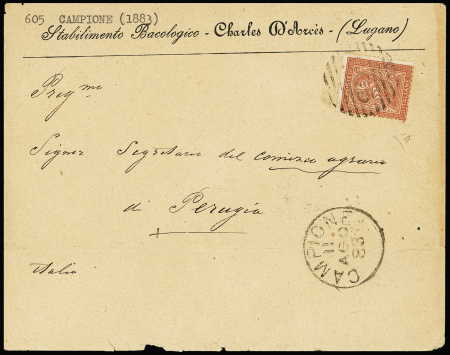 605 CAMPIONE (1883)
Stabilimento Bacologico - Charles D'Arcès - (Lugano)
Preg mo
Signor Segretario del comizio agrario
di Perugia
Italia
CAMPIONE
11
AGO
83